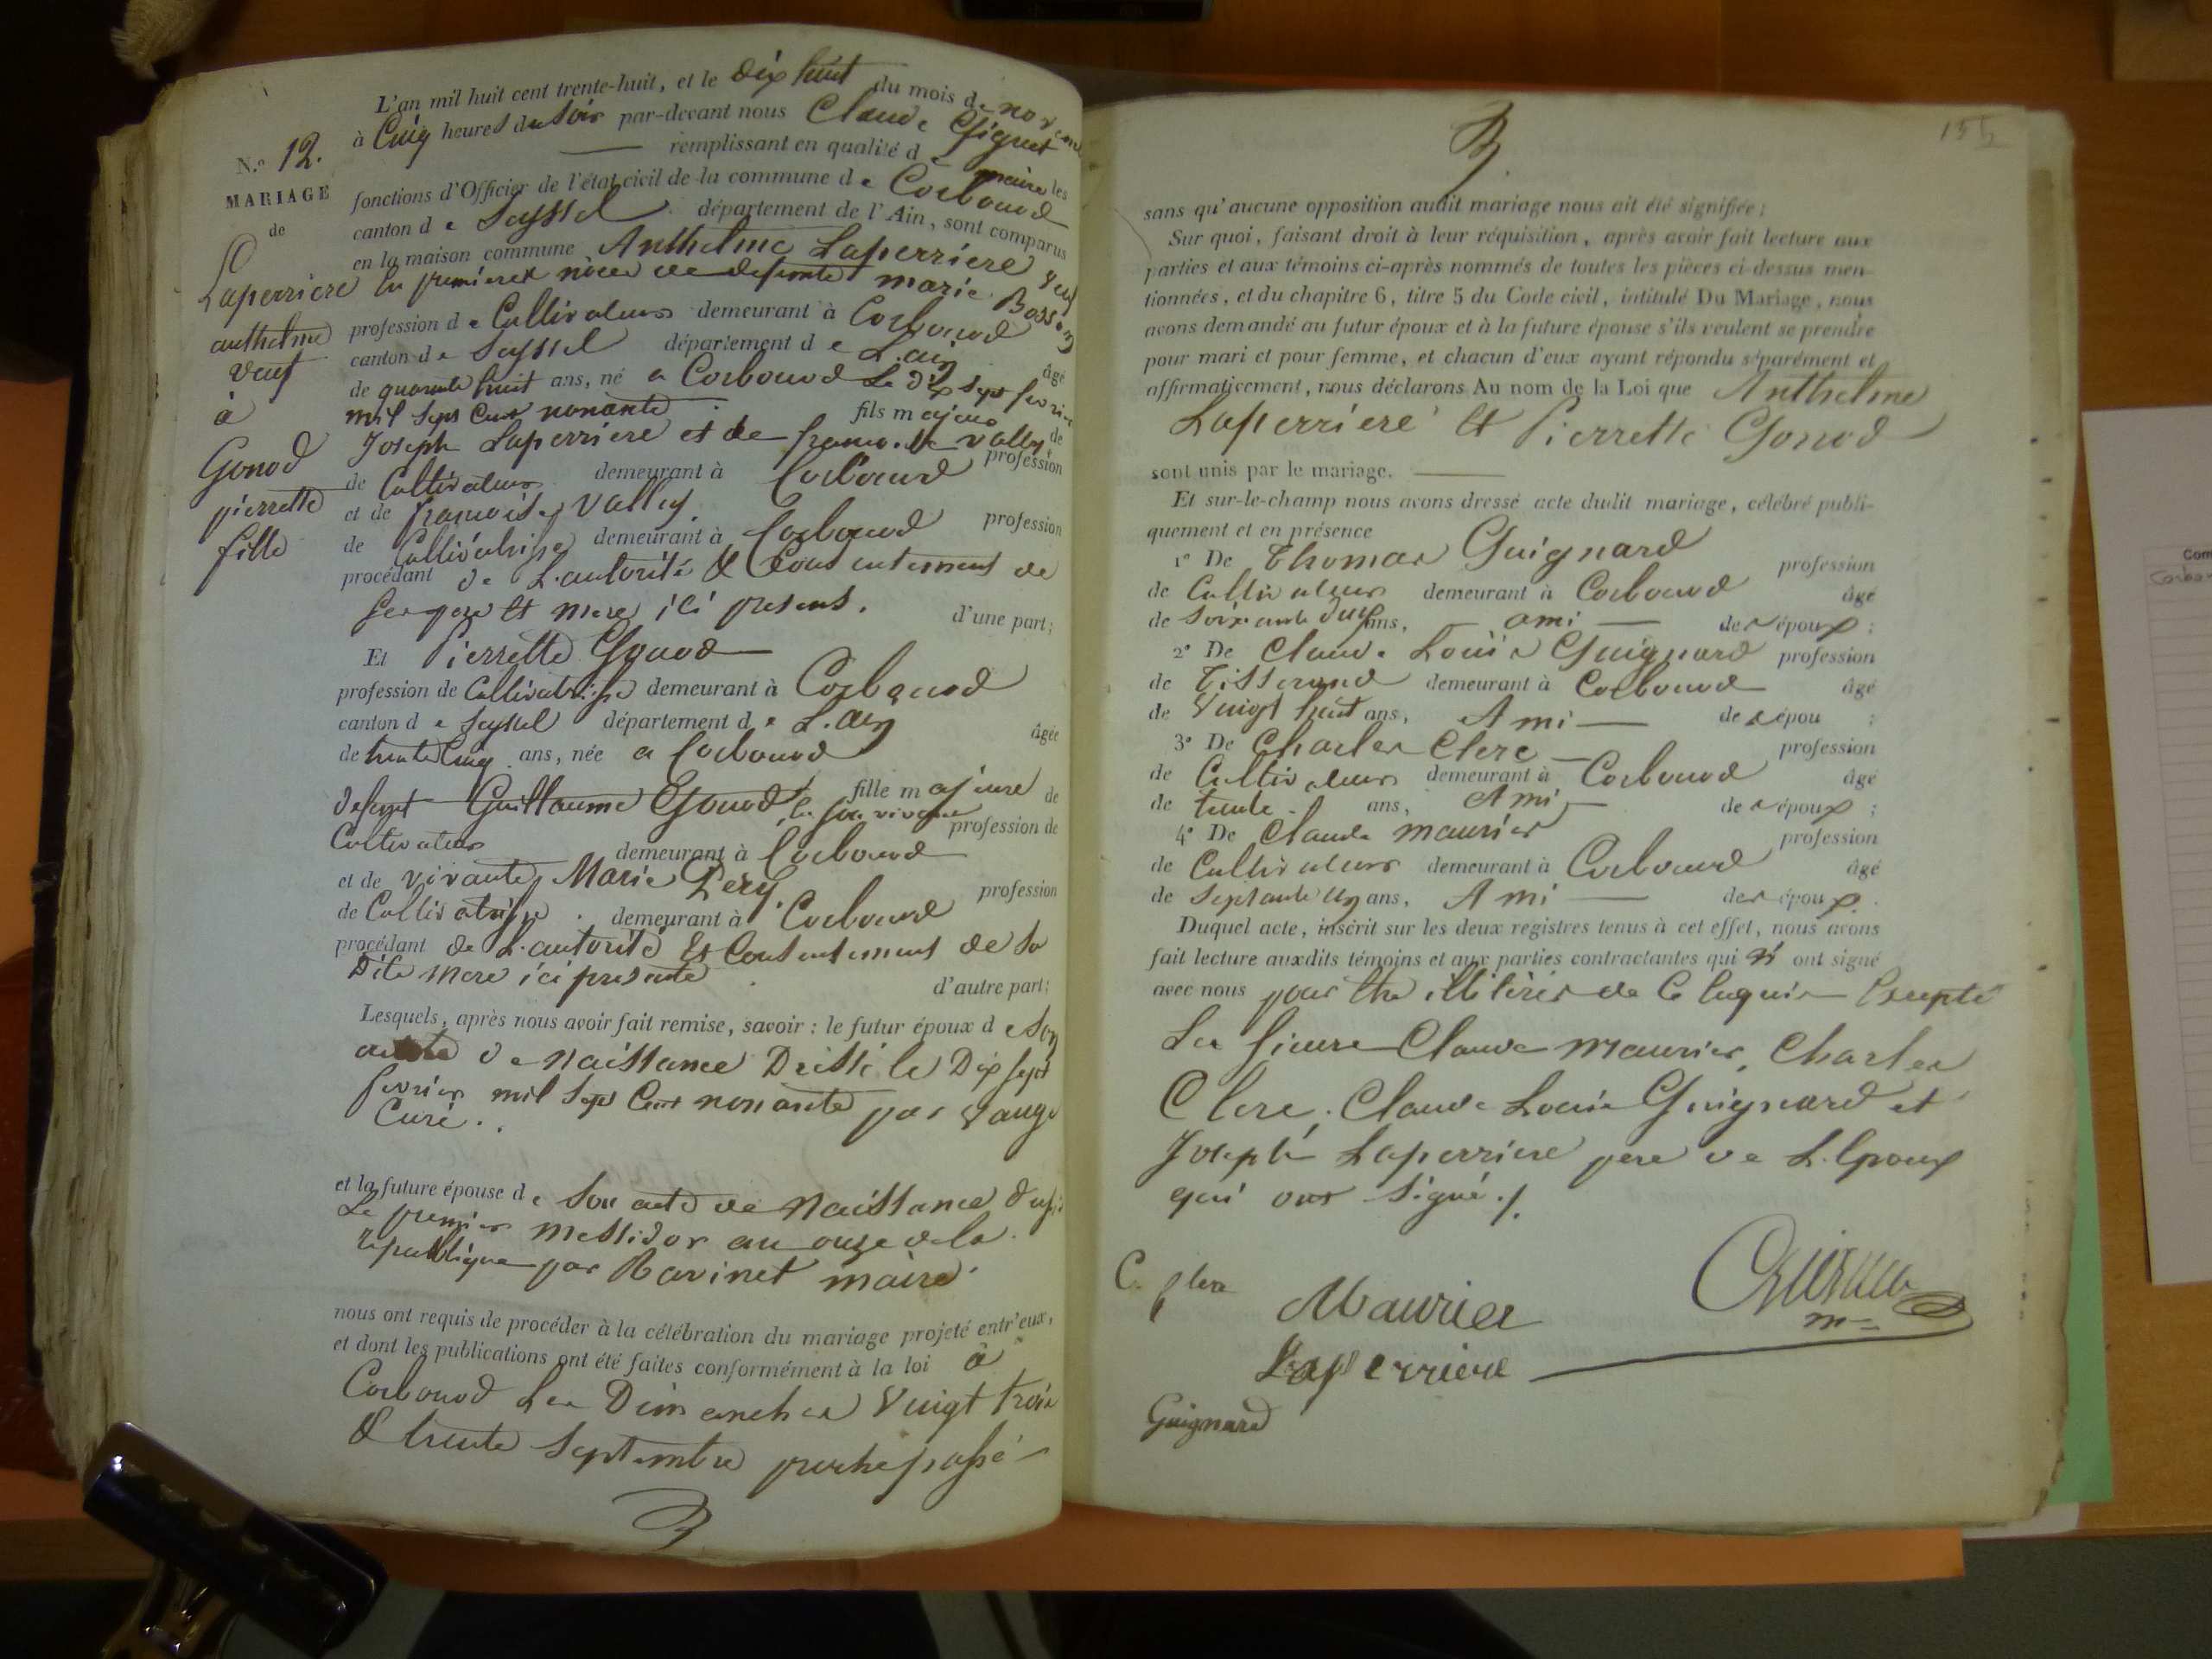 L'an mil huit cent trente-huit, et le dix huit du mois de
à Cinq heures du soir par-devant nous Claude
remplissant en qualité de maire les
N.º 12.
MARIAGE
de
Laperriere
anthelme
veuf
à
Gonod
pierrette
fille
fonctions d'Officier de l'état civil de la commune de Corbonod
canton de Seyssel département de l'Ain, sont comparus
en la maison commune Anthelme Laperriere veuf
en premieres nôces de defunte marie Bosson
profession de Cultivateur demeurant à Corbonod
canton de Seyssel département de L'ain âgé
de quarante huit ans, né a Corbonod Le dix sept fevrier
mil sept Cent nonante fils majeur de
Joseph Laperriere et de francoise vallet profession
de Cultivateur demeurant à Corbonod
et de francoise vallet profession
de Cultivatrisse demeurant à Corbonod
procédant de L'autorité & Consentement de
ses pere et mere ici presens. d'une part;
Et Pierrette Gonod
profession de Cultivatrisse demeurant à Corbonod
canton de Seyssel département de L'ain âgée
de trente Cinq ans, née a Corbonod
fille majeure de
defunt Guillaume Gonod, en son vivant profession de
Cultivateur demeurant à Corbonod
et de vivante Marie Pery. profession
de Cultivatrisse demeurant à Corbonod
procédant de L'autorité et Consentement de sa
Dite mere ici presente d'autre part;
Lesquels, après nous avoir fait remise, savoir : le futur époux de son
acte de Naissance Dressé le Dix sept
fevrier mil sept Cent nonante par
Curé.
et la future épouse de son acte de Naissance
Le premier messidor an onze de la
republique par Ravinet maire
nous ont requis de procéder à la célébration du mariage projeté entr'eux,
et dont les publications ont été faites conformément à la loi à
Corbonod Les Dimanches Vingt trois
& trente Septembre
sans qu'aucune opposition audit mariage nous ait été signifiée;
Sur quoi, faisant droit à leur réquisition, après avoir fait lecture aux
parties et aux témoins ci-après nommés de toutes les pièces ci-dessus men-
tionnées, et du chapitre 6, titre 5 du Code civil, intitulé Du Mariage, nous
avons demandé au futur époux et à la future épouse s'ils veulent se prendre
pour mari et pour femme, et chacun d'eux ayant répondu séparément et
affirmativement, nous déclarons Au nom de la Loi que Anthelme
Laperriere et Pierrette Gonod
sont unis par le mariage.
Et sur-le-champ nous avons dressé acte dudit mariage, célébré publi-
quement et en présence
1º De Thomas Guignard profession
de Cultivateur demeurant à Corbonod âgé
de Soixante ans, ami des époux ;
2º De Claude Louis Guignard profession
de Tisserand demeurant à Corbonod âgé
de Vingt huit ans, Ami des épou ;
3º De Charles Clerc profession
de Cultivateur demeurant à Corbonod âgé
de trente ans, Ami des époux ;
4º De Claude maurier profession
de Cultivateur demeurant à Corbonod âgé
de Septante un ans, Ami des époux.
Duquel acte, inscrit sur les deux registres tenus à cet effet, nous avons
fait lecture auxdits témoins et aux parties contractantes qui n' ont signé
avec nous pour être illitérés de Ce Requis Excepté
Les sieurs Claude maurier, Charles
Clerc, Claude Louis Guignard et
Joseph Laperriere pere de L'Epoux
qui ont signé ./.
C. Clerc
Maurier
Laperriere
Guignard